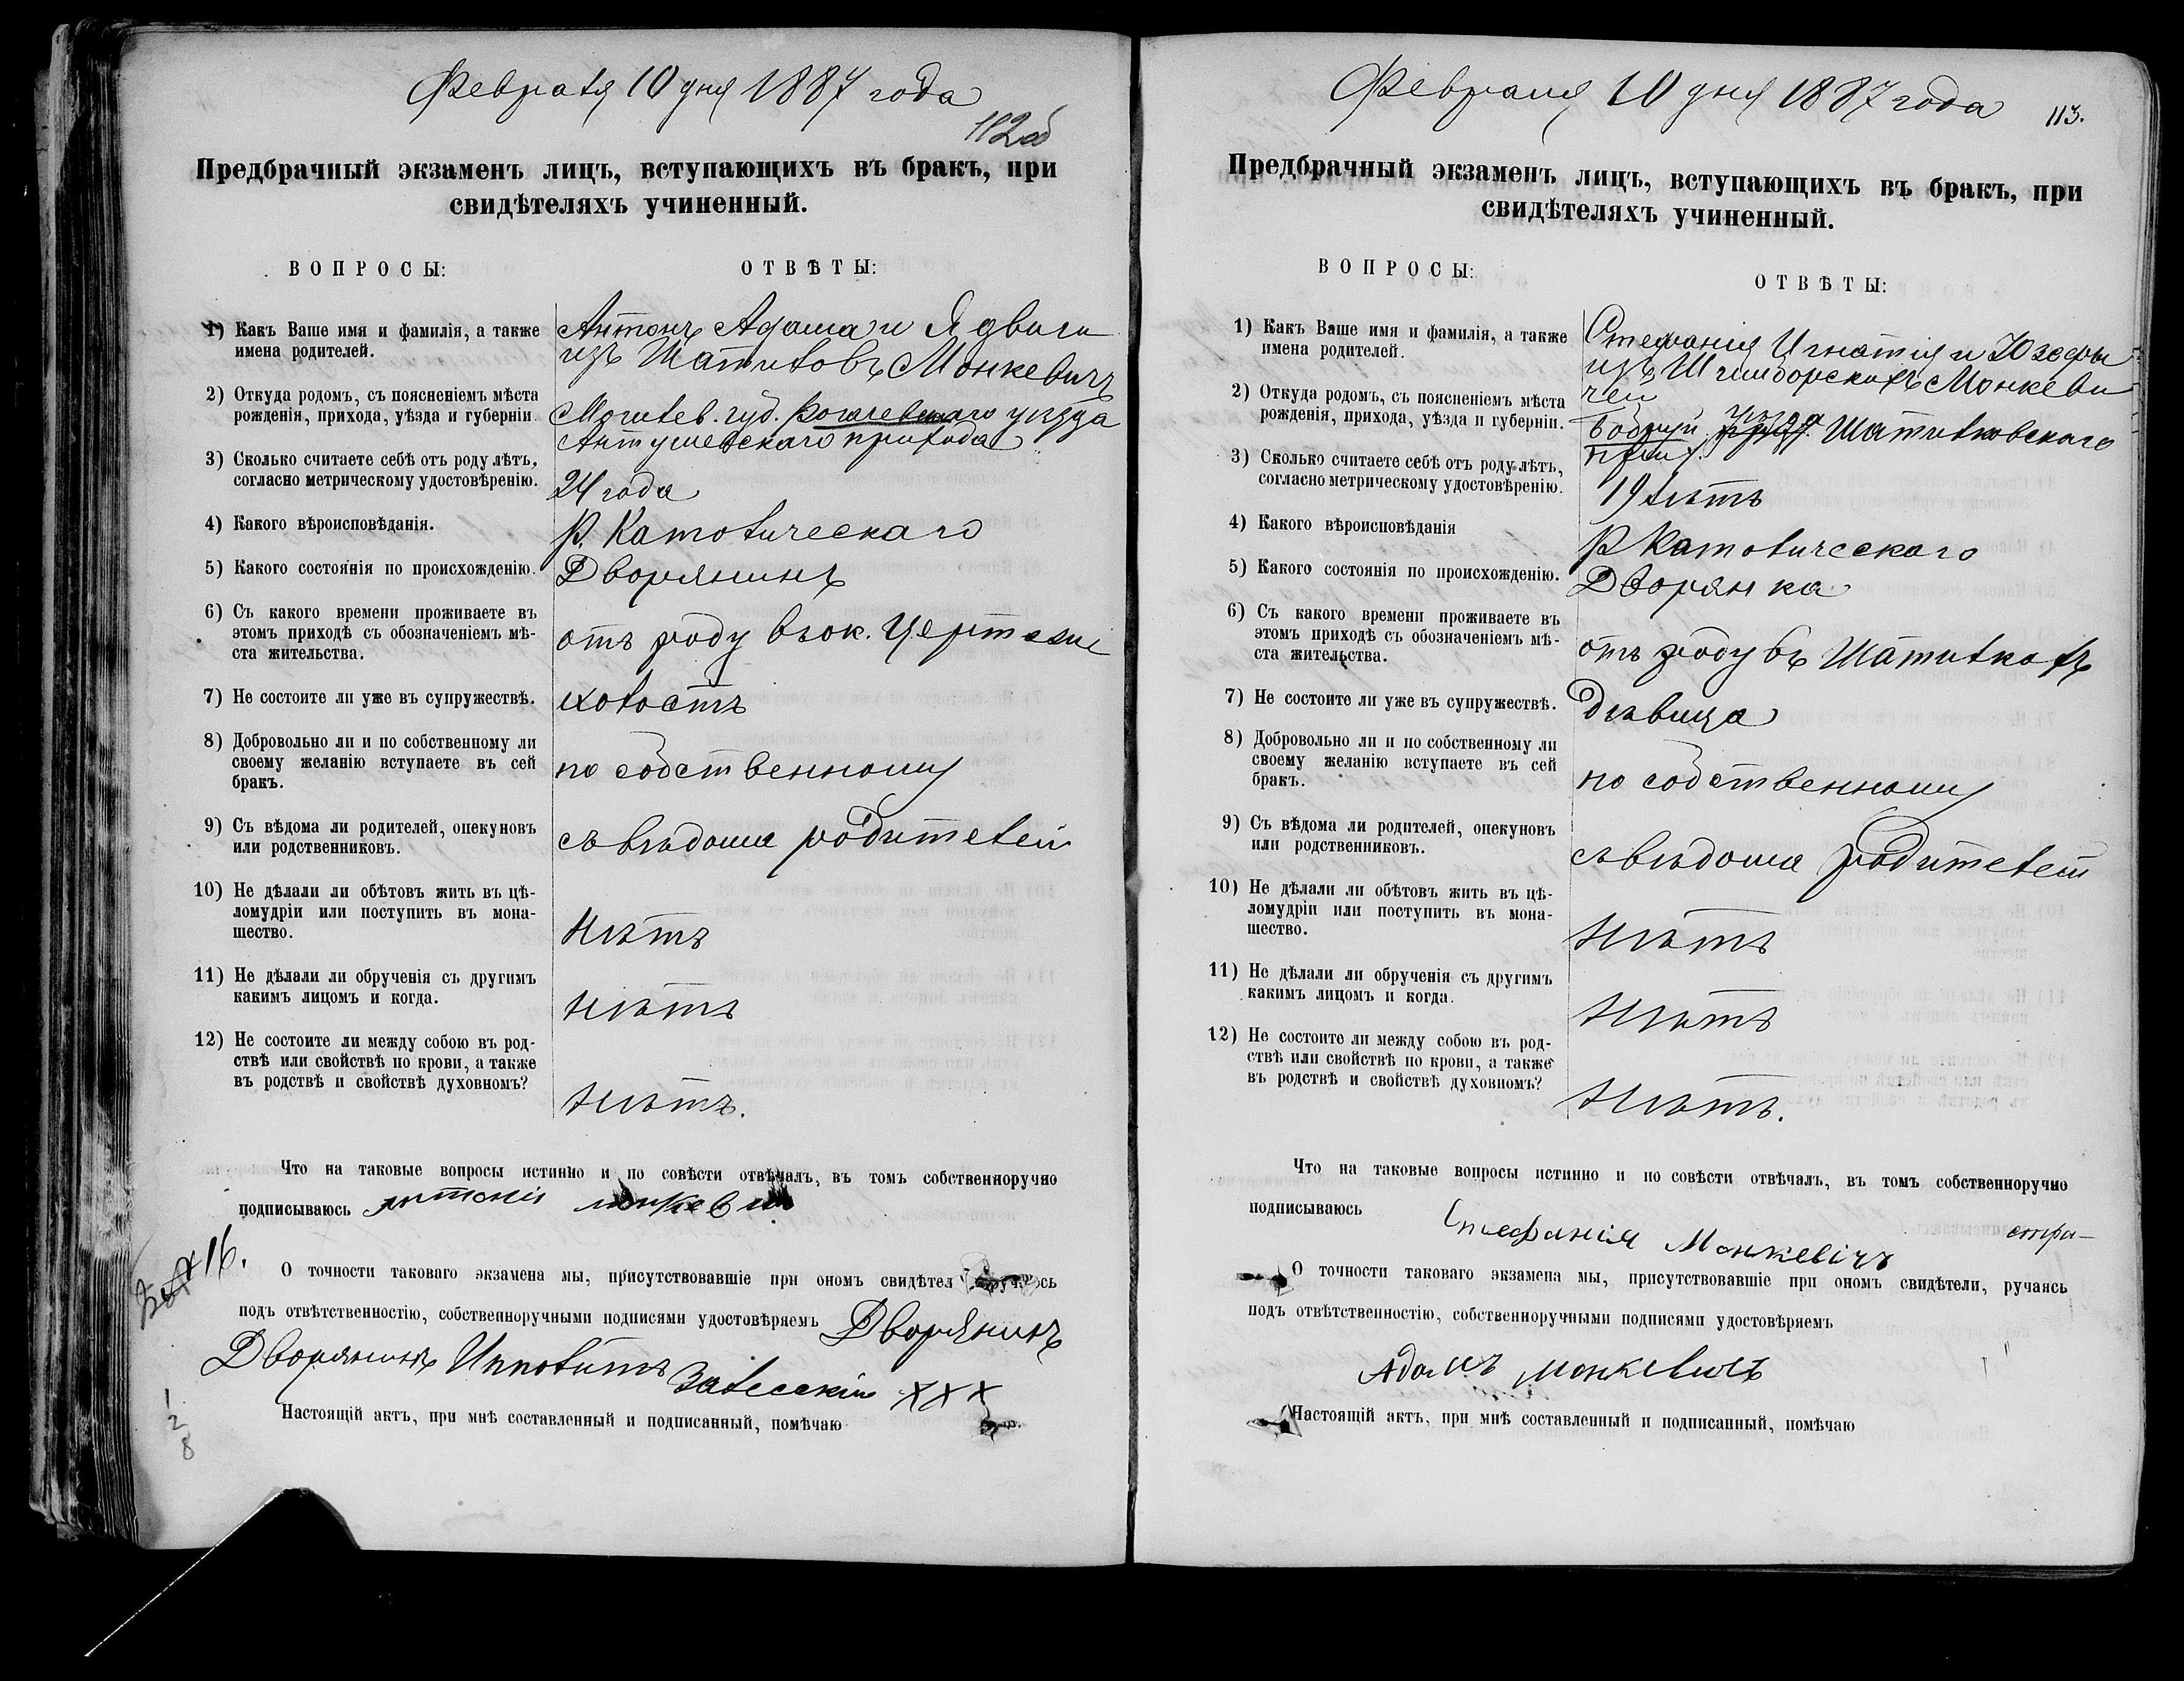 Февраля 10 дня 1887 года
112об
Предбрачный экзаменъ лицъ, вступающихъ въ бракъ, при
свидѣтеляхъ учиненный.
ВОПРОСЫ:
ОТВѢТЫ:
1) Какъ Ваше имя и фамилія, а также
имена родителей.
Антонъ Адама и Ядвиги
изъ Шатиловъ Монкевичъ
2) Откуда родомъ, съ поясненіемъ мѣста
рожденія, прихода, уѣзда и губерніи.
Могилев. губ. Рогачевскаго уѣзда
Антушевскаго прихода
3) Сколько считаете себѣ отъ роду лѣтъ,
согласно метрическому удостовѣренію.
24 года
4) Какого вѣроисповѣданія.
Р. Католическаго
5) Какого состоянія по происхожденію.
Дворянинъ
6) Съ какого времени проживаете въ
этомъ приходѣ съ обозначеніемъ мѣ-
ста жительства.
отъ роду въ ок.
7) Не состоите ли уже въ супружествѣ.
холостъ
8) Добровольно ли и по собственному ли
своему желанію вступаете въ сей
бракъ.
по собственному
9) Съ вѣдома ли родителей, опекуновъ
или родственниковъ.
съ вѣдома родителей
10) Не дѣлали ли обѣтовъ жить въ цѣ-
ломудріи или поступить въ мона-
шество.
Нѣтъ
11) Не дѣлали ли обрученія съ другимъ
какимъ лицомъ и когда.
Нѣтъ
12) Не состоите ли между собою въ род-
ствѣ или свойствѣ по крови, а также
въ родствѣ и свойствѣ духовномъ?
Нѣтъ.
Что на таковые вопросы истинно и по совѣсти отвѣчалъ, въ томъ собственноручно
подписываюсь Антоній Монкевич
16.
О точности таковаго экзамена мы, присутствовавшіе при ономъ свидѣтел ручаюсь
подъ отвѣтственностію, собственноручными подписями удостовѣряемъ Дворянинъ
Дворянинъ Ипполитъ Залесскій ХХХ
Настоящій актъ, при мнѣ составленный и подписанный, помѣчаю
1
2
8
Февраля 10 дня 1887 года
113.
Предбрачный экзаменъ лицъ, вступающихъ въ бракъ, при
свидѣтеляхъ учиненный.
ВОПРОСЫ:
ОТВѢТЫ:
1) Какъ Ваше имя и фамилія, а также
имена родителей.
Стефанія Игнатія и Юзефы
изъ Монкеви
чей
2) Откуда родомъ, съ поясненіемъ мѣста
рожденія, прихода, уѣзда и губерніи.
Бобруй. уѣзда Шатилковскаго
прих.
3) Сколько считаете себѣ отъ роду лѣтъ,
согласно метрическому удостовѣренію.
19 лѣтъ
4) Какого вѣроисповѣданія
Р Католическаго
5) Какого состоянія по происхожденію.
Дворянка
6) Съ какого времени проживаете въ
этомъ приходѣ съ обозначеніемъ мѣ-
ста жительства.
отъ роду въ Шатилкахъ
7) Не состоите ли уже въ супружествѣ.
дѣвица
8) Добровольно ли и по собственному ли
своему желанію вступаете въ сей
бракъ.
по собственному
9) Съ вѣдома ли родителей, опекуновъ
или родственниковъ.
съ вѣдома родителей
10) Не дѣлали ли обѣтовъ жить въ цѣ-
ломудріи или поступить въ мона-
шество.
Нѣтъ
11) Не дѣлали ли обрученія съ другимъ
какимъ лицомъ и когда.
Нѣтъ
12) Не состоите ли между собою въ род-
ствѣ или свойствѣ по крови, а также
въ родствѣ и свойствѣ духовномъ?
Нѣтъ.
Что на таковые вопросы истинно и по совѣсти отвѣчалъ, въ томъ собственноручно
подписываюсь
Стефанія Монкевічъ
О точности таковаго экзамена мы, присутствовавшіе при ономъ свидѣтели, ручаясь
подъ отвѣтственностію, собственноручными подписями удостовѣряемъ
Адамъ Монкевичъ
Настоящій актъ, при мнѣ составленный и подписанный, помѣчаю